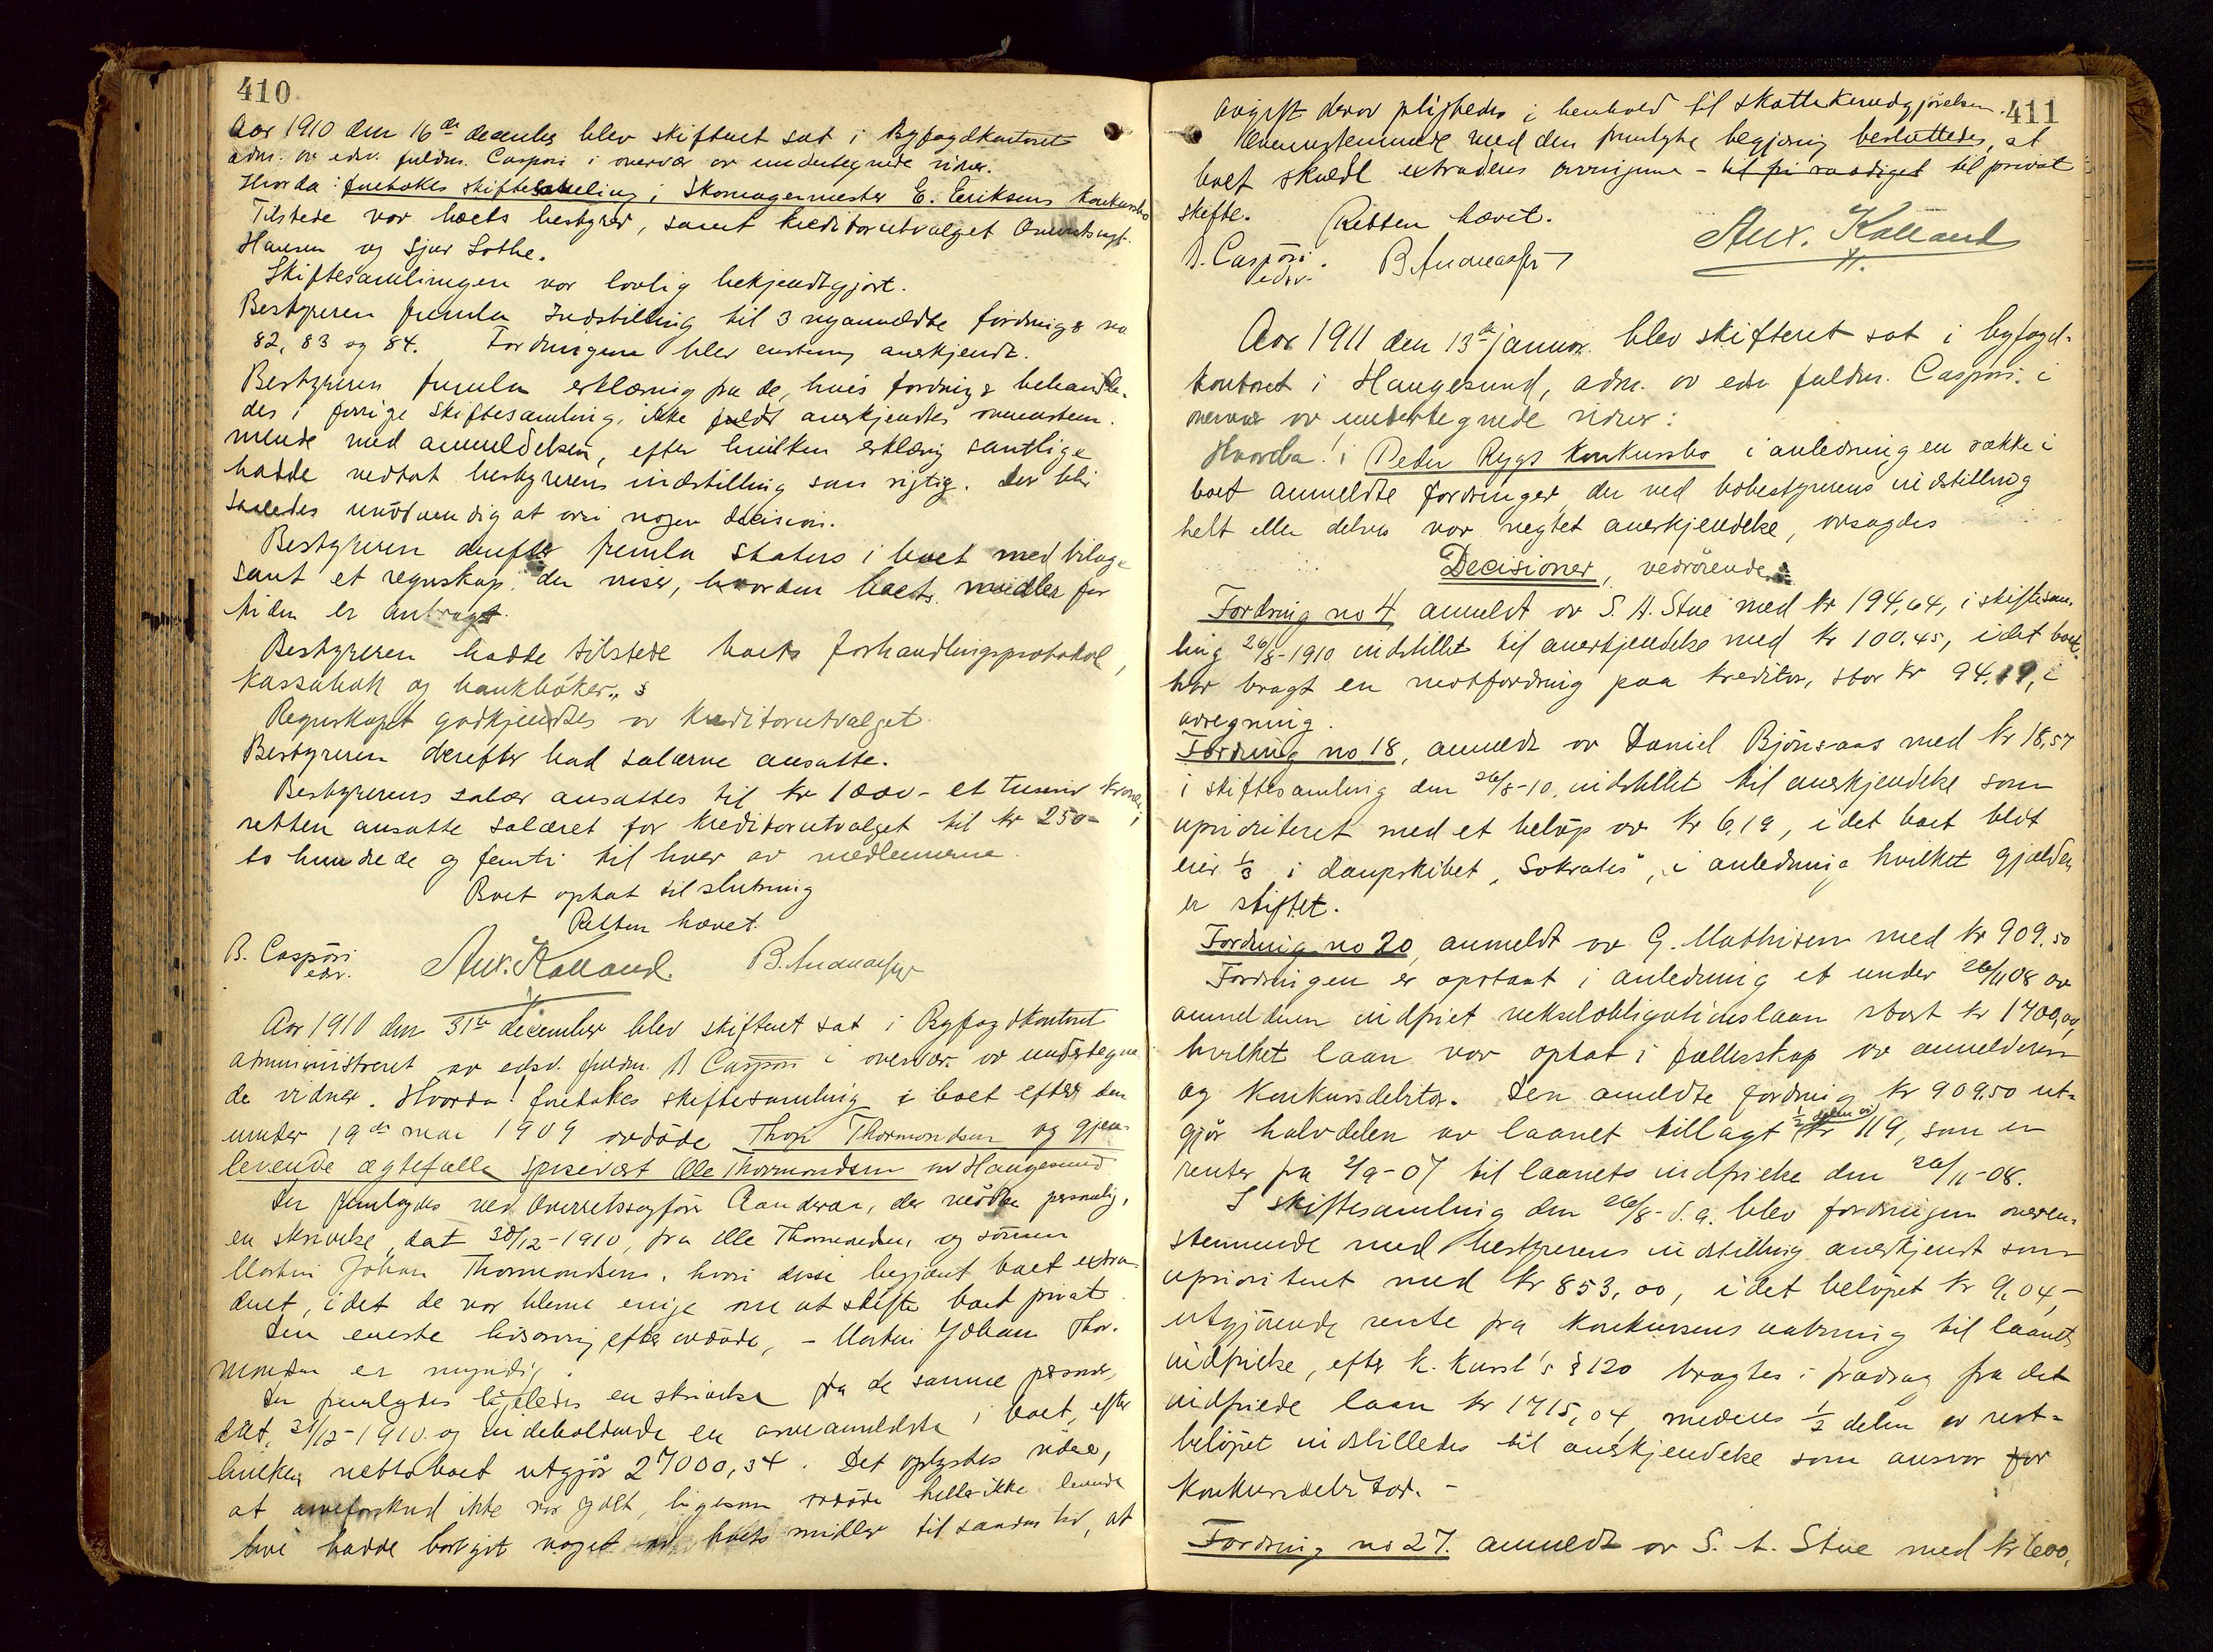 410
Aar 1910 den 16de december blev skifteret sat i Byfogdkontoret
adm. av edsv. fuldm. Caspari i overvær av undertegnede vidner.
Hvorda: foretokes skiftesamling i Skomagermester E. Eriksens konkursbo
Tilstede var boets bestyrer, samt kreditorutvalget
Hansen og Sjur Lothe.
Skiftesamlingen var lovlig bekjendtgjort.
Bestyreren fremla Indstilling til 3 nyanmeldte fordringer no
82, 83 og 84. Fordringene blev enstemmig anerkjendt.
Bestyreren fremla erklæring fra de, hvis fordringer behandle-
des i forrige skiftesamling, ikke fuldt anerkjendtes overenstem-
mende med anmeldelsen, efter hvilken erklæring samtlige
hadde vedtat bestyrerens indstilling som rigtig. Der blir
saaledes unødvendig at avsi nogen decision.
Bestyreren derefter fremla status i boet med bilage
samt et regnskap, der viser, hvordan boets midler for
tiden er anbragt.
Bestyreren hadde tilstede boets forhandlingsprotokol,
kassabok og bankbøker.
Regnskapet godkjendtes av kreditorutvalget.
Bestyreren derefter bad salærne ansatte.
Bestyrerens salær ansattes til kr 1000- et tusind kroner,
retten ansatte salæret for kreditorutvalget til kr 250-
to hundrede og femti til hver av medlemmerne.
Boet optat til slutning
Retten hævet.
B. Caspari edsv. Anx. Kolland B. Andreassen
Aar 1910 den 31te december blev skifteret sat i Byfogdkontoret
administreret av edsv. fuldm. B Caspari i overvær av undertegne
de vidner. Hvorda! foretokes skiftesamling i boet efter den
under 19de mai 1909 avdøde Thori Thormondsen og gjen-
levende ægtefælle spisevært Olle Thormondsen av Haugesund
Der fremlagdes ved Overretssagfører Aanderaa, der mødte personlig,
en skrivelse, dat 30/12-1910, fra Olle Thormondsen, og sønnen
Martin Johan Thormondsen, hvori disse begjært boet extra
deret, idet de var blevne enige om at skifte boet privat.
Den eneste livsarving efter avdøde, - Martin Johan Thor-
mondsen er myndig.
Der fremlagdes ligeledes en skrivelse fra de samme personer,
dat. 31/12-1910 og indeholdende en arveanmeldelse i boet, efter
hvilken nettoboet utgjør 27000,34. Det oplystes videre,
at arveforskud ikke var ydet, ligesom avdøde heller ikke i levende
live hadde bortgit noget av boets midler til saadan tid, at
411
avgift derav pligtedes i henhold til skattekundgjørelsen.
Overensstemmende med den fremlagte begjæring besluttedes, at
boet skulde extraderes arvingerne - til fri raadighet til privat
skifte. Retten hævet.
B. Caspari edsv. B. Andreassen Anx. Kolland
Aar 1911 den 13de januar blev skifteret sat i byfogd-
kontoret i Haugesund, adm. av edsv fuldm. Caspari i
overvær av undertegnede vidner:
Hvorda! i Peder Rygs konkursbo i anledning en række i
boet anmeldte fordringer, der ved bobestyrerens indstilling
helt eller delvis var negtet anerkjendelse, avsagdes
Decisioner, vedrørende:
Fordring no 4, anmeldt av S. A. Stue med kr 194,64, i skiftesam-
ling 26/8-1910 indstillet til anerkjendelse med kr 100,45, idet boet
har bragt en motfordring paa kreditor, stor kr 94,19, i
avregning.
Fordring no 18, anmeldt av Daniel Bjönsaas med kr 18,57
i skiftesamling den 26/8-10, indstillet til anerkjendelse som
uprioriteret med et beløp av kr 6,19, idet boet blot
eier 1/3 i dampskibet „Sokrates", i anledning hvilket gjælden
er stiftet.
Fordring no 20, anmeldt av G. Mathisen med kr 909,50
Fordringen er opstaat i anledning et under 26/11 08 av
anmelderen indfriet vekselobligationslaan stort kr 1700,00,
hvilket laan var optat i fællesskap av anmelderen
og konkursdebitor. Den anmeldte fordring kr 909,50 ut-
gjør halvdelen av laanet tillagt 1/2 delen av kr 119, som er
renter fra 2/9-07 til laanets indfrielse den 26/11-08.
I skiftesamling den 26/8-d.a. blev fordringen overens-
stemmende med bestyrerens indstilling anerkjendt som
uprioriteret med kr 853,00, idet beløpet kr 9,04,-
utgjørende rente fra konkursens aabning til laanets
indfrielse, efter k. kursl's § 120 bragtes i fradrag fra det
indfriede laan kr 1715,04, medens 1/2 delen av rest-
beløpet indstilledes til anerkjendelse som ansvar for
konkursdebitor. -
Fordring no 27. anmeldt av S. A. Stue med kr 600,